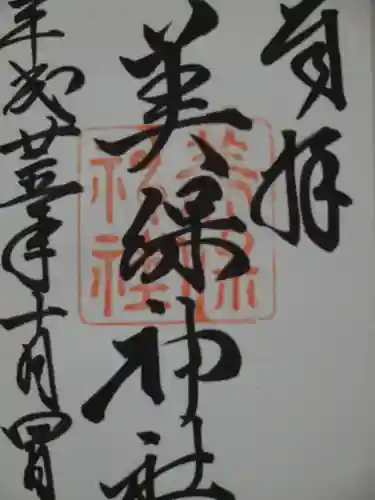 奉拝
美保神社
平成廿五年十月四日
美保神社